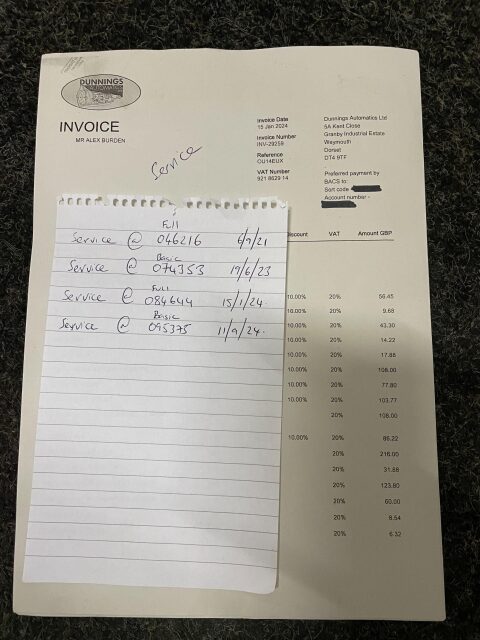 DUNNINGS
AUTOMATICS
INVOICE
MR ALEX BURDEN
Service
Invoice Date
15 Jan 2024
Invoice Number
INV-29259
Reference
OU14EUX
VAT Number
921 8629 14
Dunnings Automatics Ltd
5A Kent Close
Granby Industrial Estate
Weymouth
Dorset
DT4 9TF
Preferred payment by
BACS to:
Sort code
Account number -
Discount VAT Amount GBP
10.00% 20% 56.45
10.00% 20% 9.68
10.00% 20% 43.30
10.00% 20% 14.22
10.00% 20% 17.86
10.00% 20% 108.00
10.00% 20% 77.80
10.00% 20% 103.77
20% 108.00
10.00% 20% 86.22
20% 216.00
20% 31.88
20% 123.80
20% 60.00
20% 8.54
20% 6.32
Full
Service @ 046216 6/9/21
Basic
Service @ 074353 19/6/23
Full
Service @ 084644 15/1/24.
Basic
Service @ 095375 11/9/24.